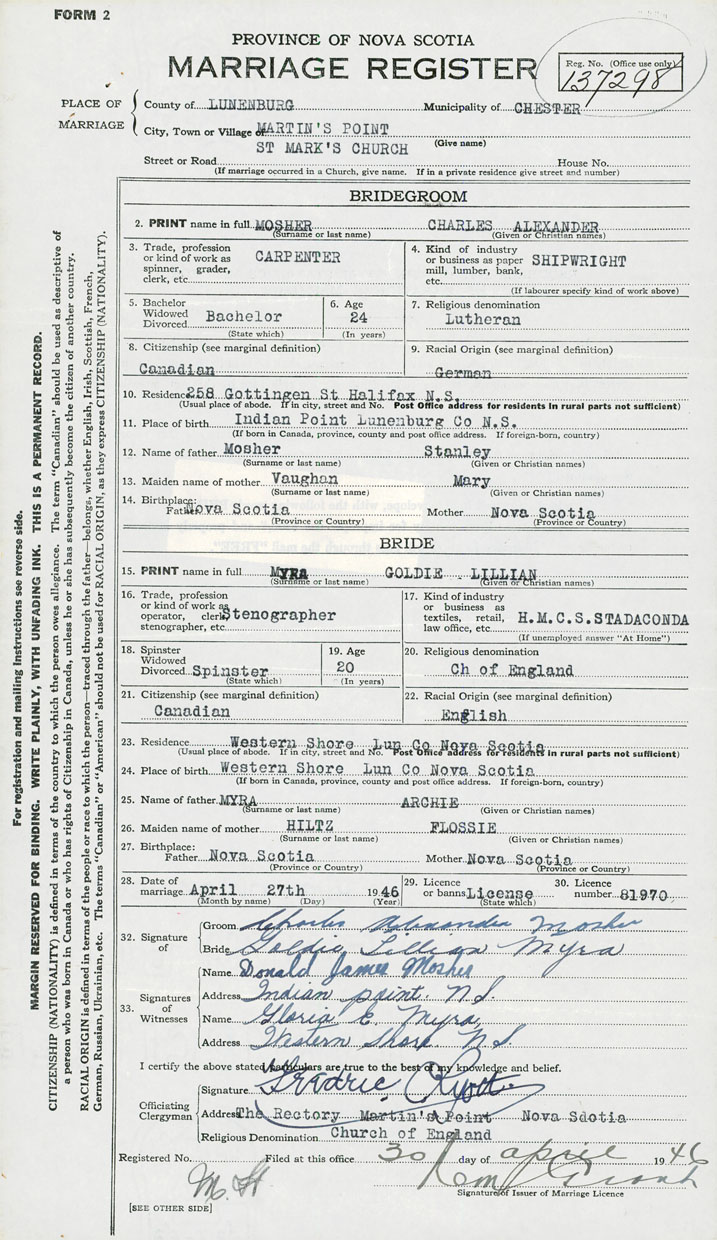 FORM 2
PROVINCE OF NOVA SCOTIA
MARRIAGE REGISTER
Reg. No. (Office use only)
137298
PLACE OF MARRIAGE
County of LUNENBURG Municipality of CHESTER
City, Town or Village of MARTIN'S POINT
(Give name)
ST MARK'S CHURCH
Street or Road House No.
(If marriage occurred in a Church, give name. If in a private residence give street and number)
BRIDEGROOM
2. PRINT name in full MOSHER CHARLES ALEXANDER
(Surname or last name) (Given or Christian names)
3. Trade, profession or kind of work as spinner, grader, clerk, etc. CARPENTER
4. Kind of industry or business as paper mill, lumber, bank, etc. SHIPWRIGHT
(If labourer specify kind of work above)
5. Bachelor Widowed Divorced Bachelor
(State which)
6. Age 24
(In years)
7. Religious denomination
Lutheran
8. Citizenship (see marginal definition)
Canadian
9. Racial Origin (see marginal definition)
German
10. Residence 258 Gottingen St Halifax N.S.
(Usual place of abode. If in city, street and No. Post Office address for residents in rural parts not sufficient)
11. Place of birth Indian Point Lunenburg Co N.S.
(If born in Canada, province, county and post office address. If foreign-born, country)
12. Name of father Mosher Stanley
(Surname or last name) (Given or Christian names)
13. Maiden name of mother Vaughan Mary
(Surname or last name) (Given or Christian names)
14. Birthplace:
Father Nova Scotia Mother Nova Scotia
(Province or Country) (Province or Country)
BRIDE
15. PRINT name in full MYRA GOLDIE LILLIAN
(Surname or last name) (Given or Christian names)
16. Trade, profession or kind of work as operator, clerk, stenographer, etc. Stenographer
17. Kind of industry or business as textiles, retail, law office, etc. H.M.C.S.STADACONDA
(If unemployed answer "At Home")
18. Spinster Widowed Divorced Spinster
(State which)
19. Age 20
(In years)
20. Religious denomination
Ch of England
21. Citizenship (see marginal definition)
Canadian
22. Racial Origin (see marginal definition)
English
23. Residence Western Shore Lun Co Nova Scotia
(Usual place of abode. If in city, street and No. Post Office address for residents in rural parts not sufficient)
24. Place of birth Western Shore Lun Co Nova Scotia
(If born in Canada, province, county and post office address. If foreign-born, country)
25. Name of father MYRA ARCHIE
(Surname or last name) (Given or Christian names)
26. Maiden name of mother HILTZ FLOSSIE
(Surname or last name) (Given or Christian names)
27. Birthplace:
Father Nova Scotia Mother Nova Scotia
(Province or Country) (Province or Country)
28. Date of marriage April 27th 1946
(Month by name) (Day) (Year)
29. Licence or banns License
(State which)
30. Licence number 81970
32. Signature of
Groom Charles Alexander Mosher
Bride Goldie Lillian Myra
33. Signatures of Witnesses
Name Donald James Mosher
Address Indian point. N.S.
Name Gloria E Myra
Address Western Shore N.S.
I certify the above stated particulars are true to the best of my knowledge and belief.
Officiating Clergyman
Signature Fredric
Address The Rectory Martin's Point Nova Sdotia
Religious Denomination Church of England
Registered No. Filed at this office 30 day of april 1946
Signature of Issuer of Marriage Licence
[SEE OTHER SIDE]
For registration and mailing instructions see reverse side.
MARGIN RESERVED FOR BINDING. WRITE PLAINLY, WITH UNFADING INK. THIS IS A PERMANENT RECORD.
CITIZENSHIP (NATIONALITY) is defined in terms of the country to which the person owes allegiance. The term "Canadian" should be used as descriptive of
a person who was born in Canada or who has rights of Citizenship in Canada, unless he or she has subsequently become the citizen of another country.
RACIAL ORIGIN is defined in terms of the people or race to which the person—traced through the father—belongs, whether English, Irish, Scottish, French,
German, Russian, Ukrainian, etc. The terms "Canadian" or "American" should not be used for RACIAL ORIGIN, as they express CITIZENSHIP (NATIONALITY).